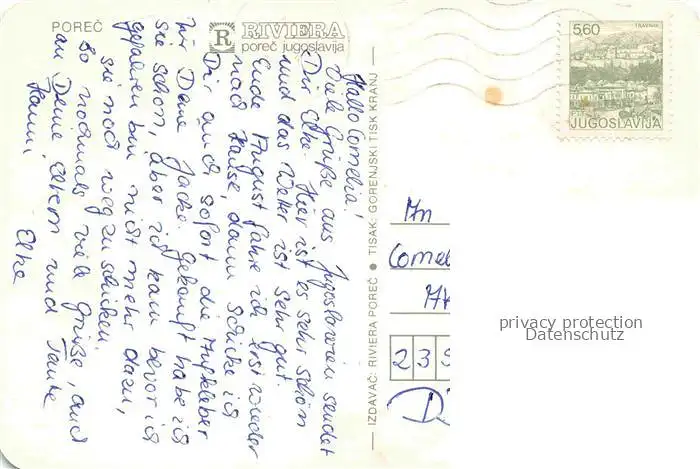 POREČ
R RIVIERA
poreč jugoslavija
Hallo Cornelia!
Viele Grüße aus Jugoslawien sendet
Dir Elke. Hier ist es sehr schön
und das Wetter ist sehr gut.
Ende August fahre ich erst wieder
nach Hause, dann schicke ich
Dir auch sofort die Aufkleber
für Deine Jacke. Gekauft habe ich
sie schon, aber ich kam bevor ich
gefahren bin nicht mehr dazu,
sie noch weg zu schicken.
So nochmals viele Grüße, auch
an Deine Eltern und Tante
Hanni
Elke
IZDAVAČ: RIVIERA POREČ ● TISAK: GORENJSKI TISK KRANJ
TRAVNIK
5.60
PTT
JUGOSLAVIJA
An
Cornel
23
D
privacy protection
Datenschutz